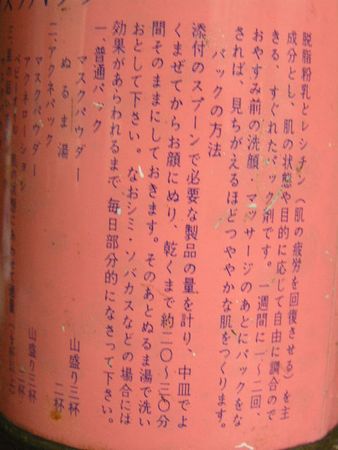 脱脂粉乳とレシチン（肌の疲労を回復させる）を主
成分とし、肌の状態や目的に応じて自由に調合ので
きる、すぐれたパック剤です。一週間に一～二回、
おやすみ前の洗顔、マッサージのあとにパックをな
されば、見ちがえるほどつややかな肌をつくります。
パックの方法
添付のスプーンで必要な製品の量を計り、中皿でよ
くまぜてからお顔にぬり、乾くまで約二〇～三〇分
間そのままにしておきます。そのあとぬるま湯で洗い
おとして下さい。なおシミ・ソバカスなどの場合には
効果があらわれるまで、毎日部分的になさって下さい。
一、普通パック
マスクパウダー 山盛り三杯
ぬるま湯 二杯
二、アクネパック
マスクパウダー 山盛り三杯
ローション 二杯